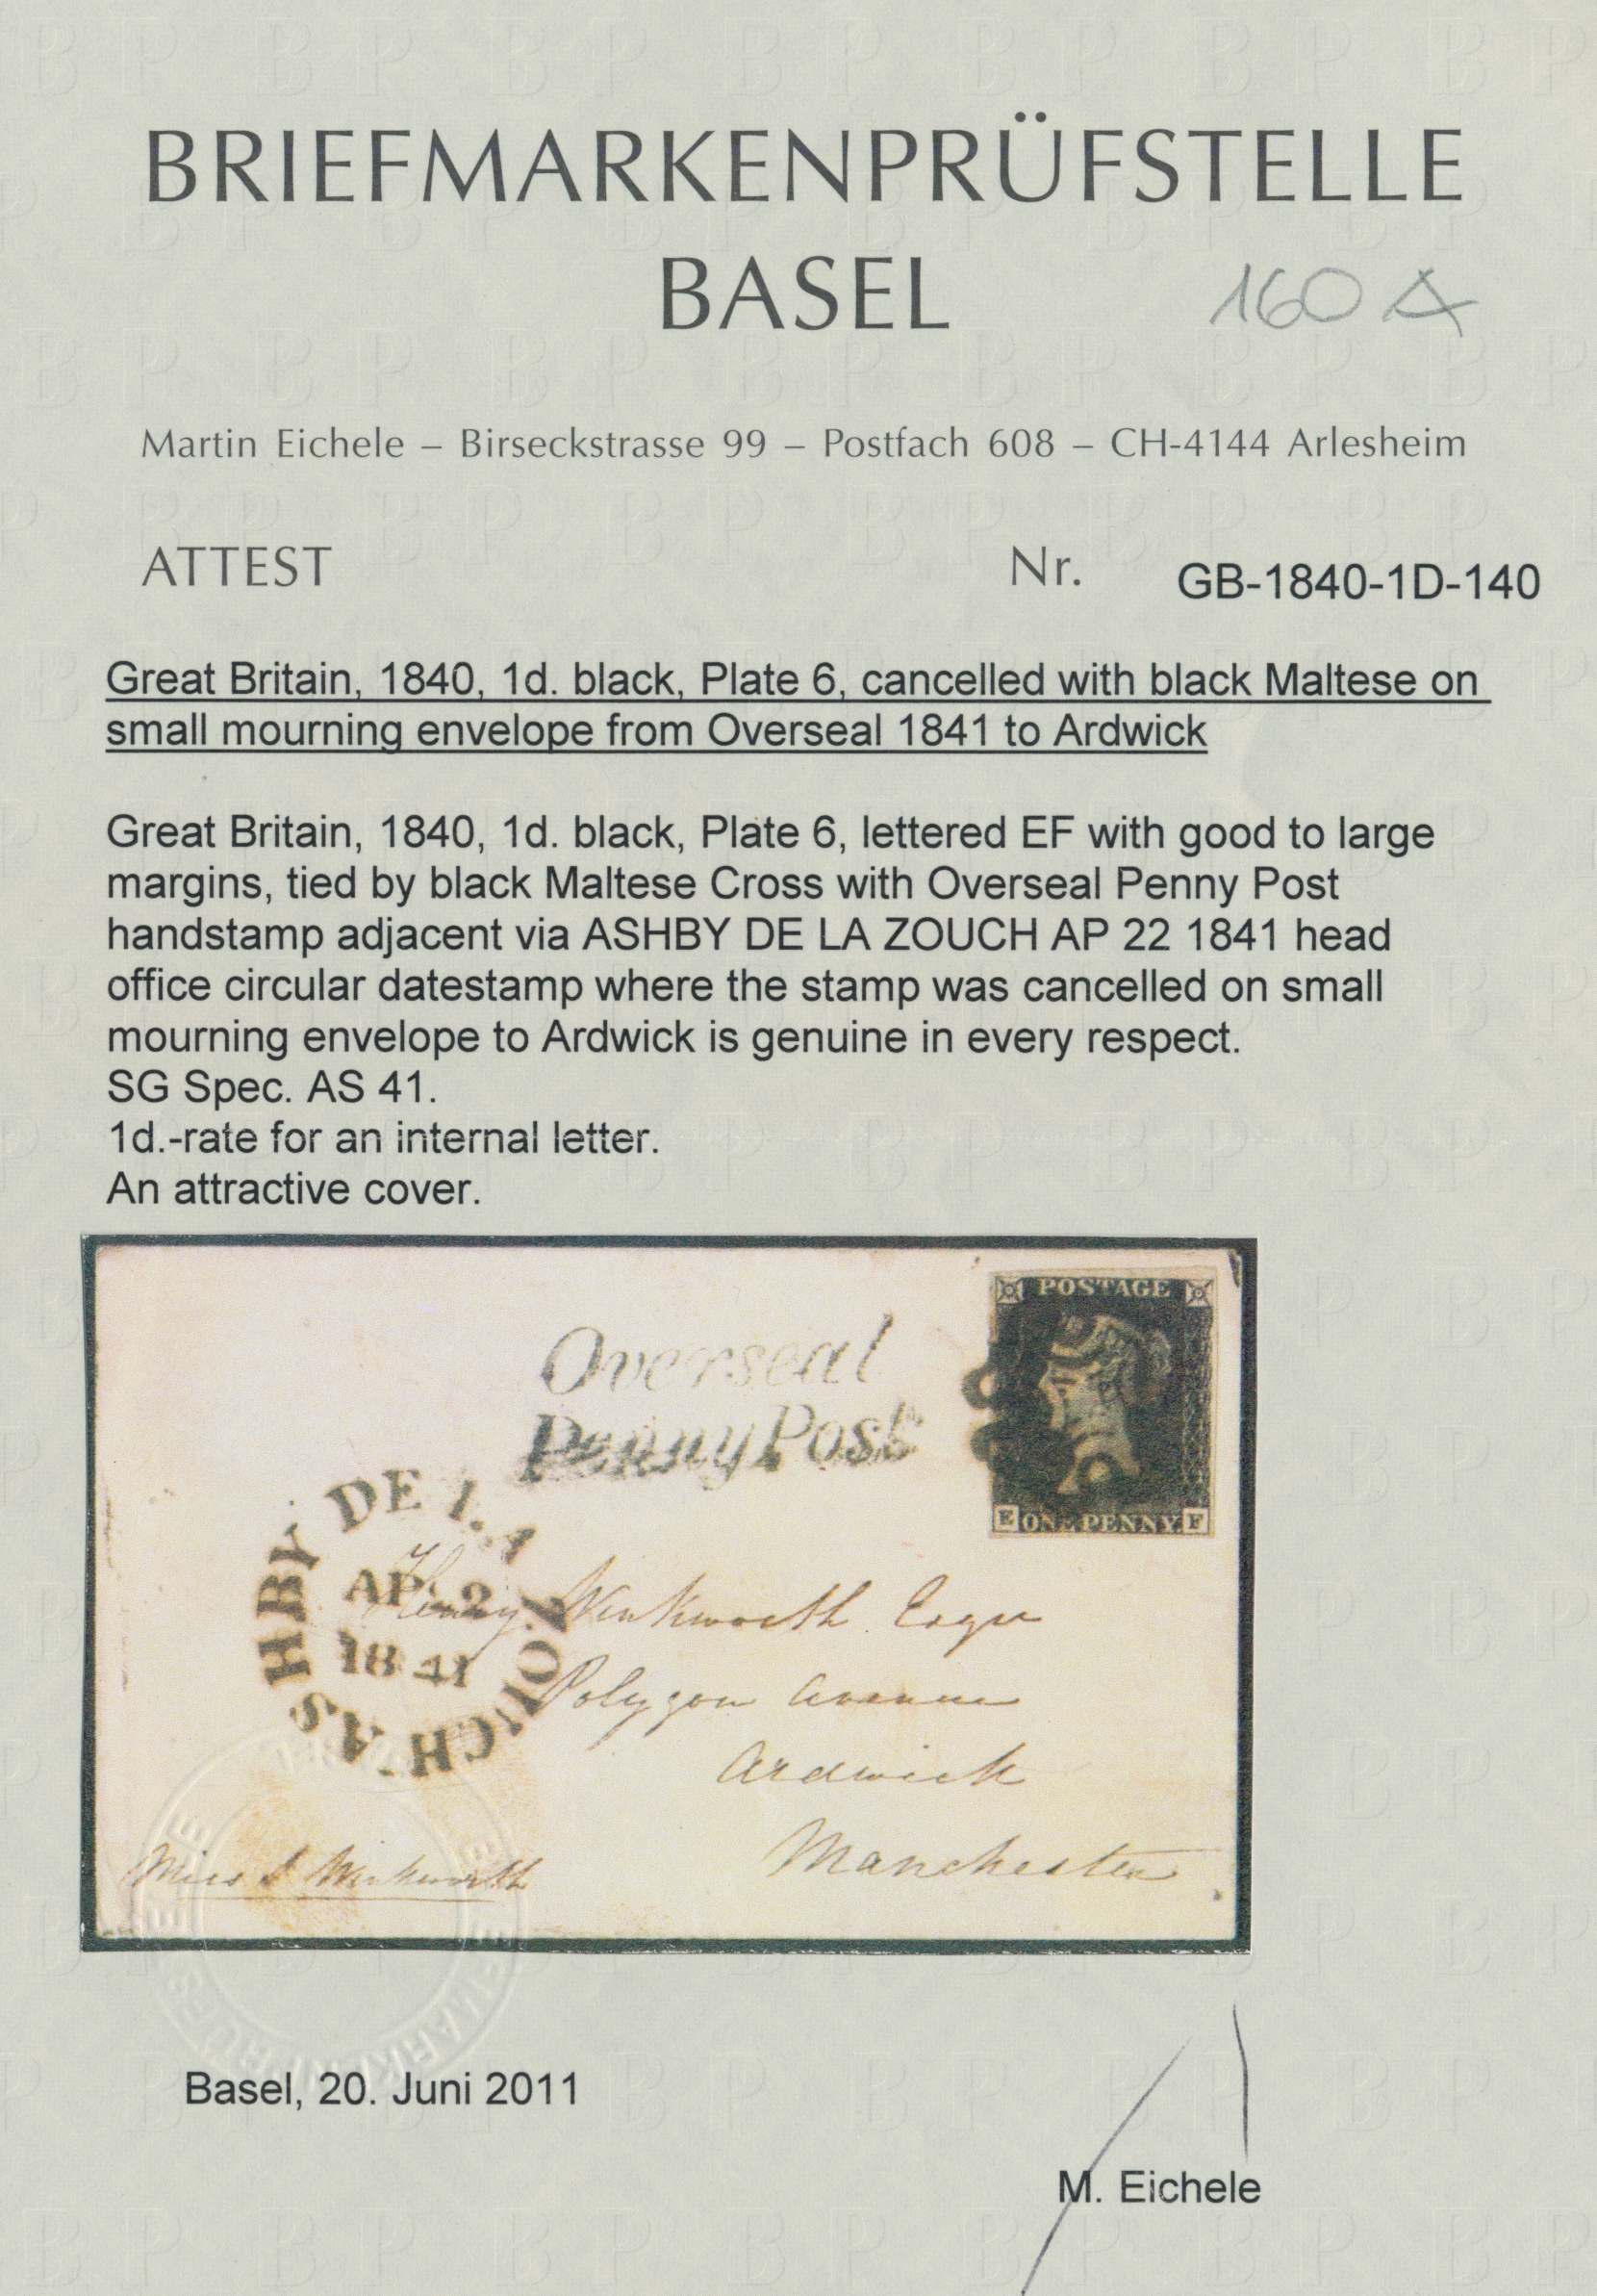 BRIEFMARKENPRÜFSTELLE
BASEL
160 A
Martin Eichele – Birseckstrasse 99 – Postfach 608 – CH-4144 Arlesheim
ATTEST Nr. GB-1840-1D-140
Great Britain, 1840, 1d. black, Plate 6, cancelled with black Maltese on
small mourning envelope from Overseal 1841 to Ardwick
Great Britain, 1840, 1d. black, Plate 6, lettered EF with good to large
margins, tied by black Maltese Cross with Overseal Penny Post
handstamp adjacent via ASHBY DE LA ZOUCH AP 22 1841 head
office circular datestamp where the stamp was cancelled on small
mourning envelope to Ardwick is genuine in every respect.
SG Spec. AS 41.
1d.-rate for an internal letter.
An attractive cover.
POSTAGE
E ONE PENNY F
Overseal
Penny Post
ASHBY DE LA ZOUCH
AP 2
1841
Henry Winkworth Esqre
Polygon Avenue
Ardwick
Manchester
Miss S Winkworth
BRIEFMARKENPRÜFSTELLE
Basel, 20. Juni 2011
M. Eichele